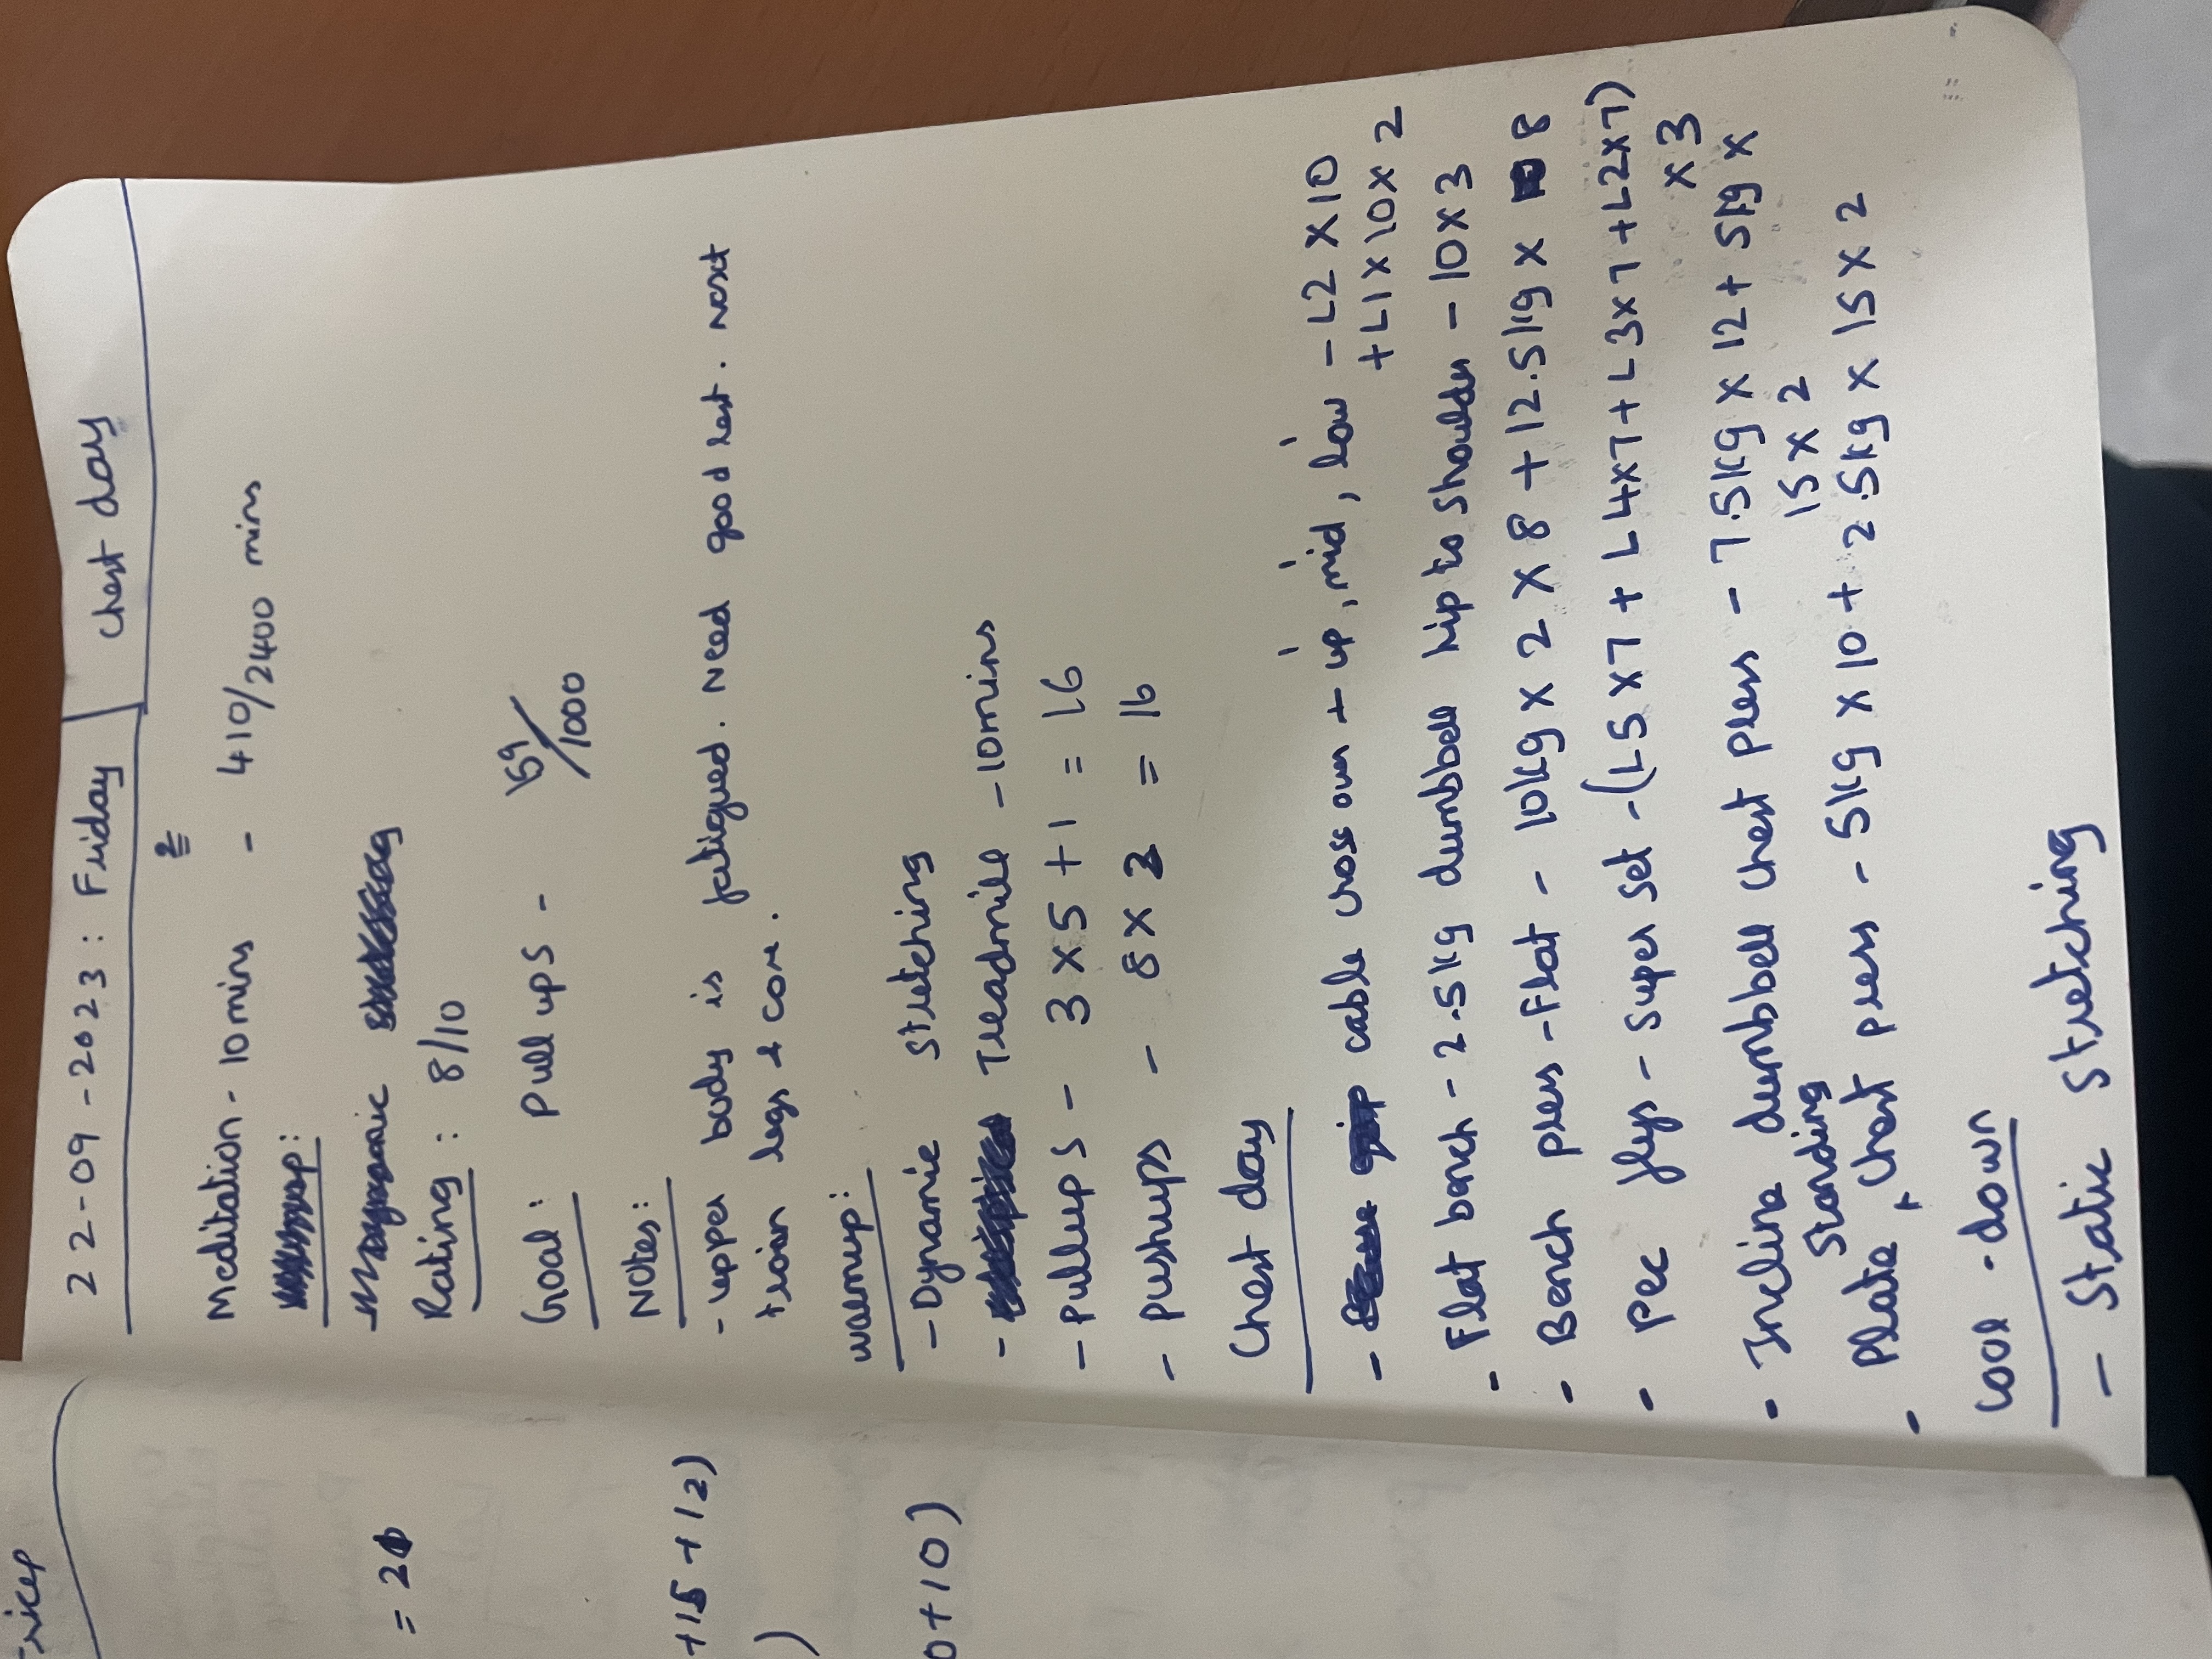 22-09-2023: Friday | chest day
Meditation - 10mins - 410/2400 mins
Rating: 8/10
Goal: Pull ups - 159/1000
Notes:
- upper body is fatigued. Need good rest. next
train legs & core.
warmup:
- Dynamic stretching
- Treadmile - 10mins
- Pullups - 3 x 5 + 1 = 16
- pushups - 8 x 2 = 16
Chest day
- cable cross over - up, mid, low - L2 x 10
+ L1 x 10 x 2
- Flat bench - 2.5kg dumbbell hip to shoulder - 10 x 3
- Bench press - Flat - 10kg x 2 x 8 + 12.5kg x 8
- Pec flys - super set - (L5 x 7 + L4x7 + L3x7 + L2x7)
x 3
- Incline dumbbell chest press - 7.5kg x 12 + 5kg x
15 x 2
Standing
- Plate, chest press - 5kg x 10 + 2.5kg x 15 x 2
cool-down
- static stretching
ricep
+15+12)
)
0+10)